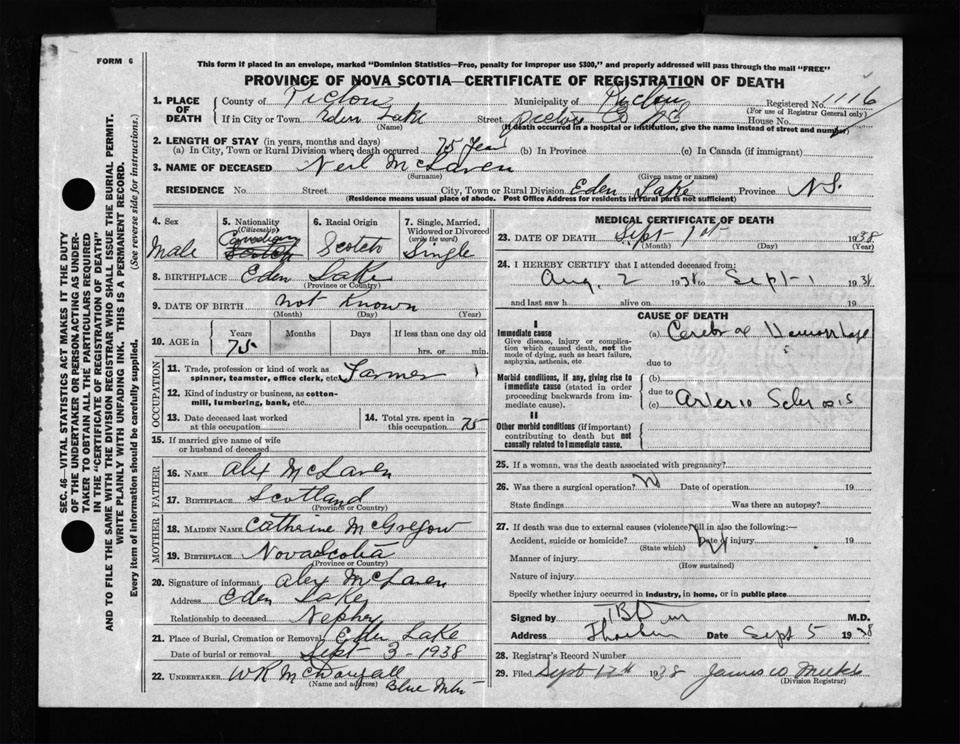 FORM 6
This form if placed in an envelope, marked "Dominion Statistics—Free, penalty for improper use $300," and properly addressed will pass through the mail "FREE"
PROVINCE OF NOVA SCOTIA—CERTIFICATE OF REGISTRATION OF DEATH
1. PLACE OF DEATH
County of Pictou Municipality of Pictou Registered No. 1116
(For use of Registrar General only)
If in City or Town Eden Lake Street Pictou Co NS House No.
(Name) (If death occurred in a hospital or institution, give the name instead of street and number)
2. LENGTH OF STAY (in years, months and days)
(a) In City, Town or Rural Division where death occurred 75 Years (b) In Province (c) In Canada (if immigrant)
3. NAME OF DECEASED Neil McLaren
(Surname) (Given name or names)
RESIDENCE No. Street City, Town or Rural Division Eden Lake Province N.S.
(Residence means usual place of abode. Post Office Address for residents in rural parts not sufficient)
4. Sex
Male
5. Nationality
(Citizenship)
Canadian
Scotch
6. Racial Origin
Scotch
7. Single, Married, Widowed or Divorced
(write the word)
Single
8. BIRTHPLACE Eden Lake
(Province or Country)
9. DATE OF BIRTH not Known
(Month) (Day) (Year)
10. AGE in
Years Months Days If less than one day old
75 hrs. or min.
OCCUPATION
11. Trade, profession or kind of work as spinner, teamster, office clerk, etc. Farmer
12. Kind of industry or business, as cotton-mill, lumbering, bank, etc.
13. Date deceased last worked at this occupation
14. Total yrs. spent in this occupation 75
15. If married give name of wife or husband of deceased
FATHER
16. NAME Alex McLaren
17. BIRTHPLACE Scotland
(Province or Country)
MOTHER
18. MAIDEN NAME Catherine McGregow
19. BIRTHPLACE Nova Scotia
(Province or Country)
20. Signature of informant Alex McLaren
Address Eden Lake
Relationship to deceased Nephew
21. Place of Burial, Cremation or Removal Eden Lake
Date of burial or removal Sept 3 - 1938
22. UNDERTAKER WR McDougall
(Name and address) Blue Mtn
MEDICAL CERTIFICATE OF DEATH
23. DATE OF DEATH Sept 1st 1938
(Month) (Day) (Year)
24. I HEREBY CERTIFY that I attended deceased from:
Aug. 2 1938 to Sept-1 1938
and last saw h alive on 19
CAUSE OF DEATH
I
Immediate cause
Give disease, injury or complication which caused death, not the mode of dying, such as heart failure, asphyxia, asthenia, etc.
(a) Cerebral Hemorrhage
due to
Morbid conditions, if any, giving rise to immediate cause (stated in order proceeding backwards from immediate cause).
(b)
due to
(c) Arterio Sclerosis
II
Other morbid conditions (if important) contributing to death but not causally related to immediate cause.
25. If a woman, was the death associated with pregnancy?
26. Was there a surgical operation? Date of operation 19
State findings Was there an autopsy?
27. If death was due to external causes (violence) fill in also the following:—
Accident, suicide or homicide? Date of injury 19
(State which)
Manner of injury
(How sustained)
Nature of injury
Specify whether injury occurred in industry, in home, or in public place
Signed by M.D.
Address Date Sept 5 1938
28. Registrar's Record Number
29. Filed Sept 12th 1938
(Division Registrar)
SEC. 46—VITAL STATISTICS ACT MAKES IT THE DUTY
OF THE UNDERTAKER OR PERSON ACTING AS UNDER-
TAKER TO OBTAIN ALL THE PARTICULARS REQUIRED
IN THE "CERTIFICATE OF REGISTRATION OF DEATH"
AND TO FILE THE SAME WITH THE DIVISION REGISTRAR WHO SHALL ISSUE THE BURIAL PERMIT.
WRITE PLAINLY WITH UNFADING INK. THIS IS A PERMANENT RECORD.
Every item of information should be carefully supplied. (See reverse side for instructions.)